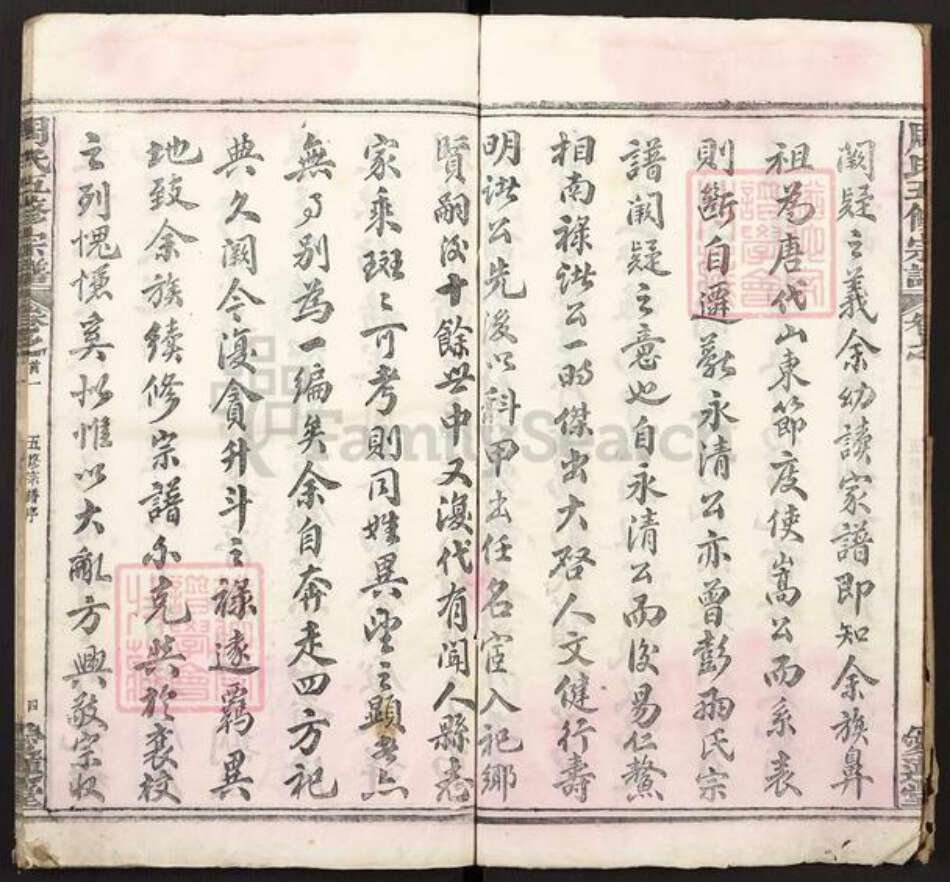 闕疑之義余幼讀家譜即知余族鼻
祖為唐代山東節度使嵩公而系表
則斷自遷蘄永清公亦曾彭兩氏宗
譜闕疑之意也自永清公而後易仁鰲
相南祿諸公一時傑出大啓人文健行壽
明諸公先後以科甲出任名宦入祀鄉
賢嗣後十餘世中又復代有聞人縣志
家乘斑之可考則同姓異望之顯者亦
無可別為一編矣余自奔走四方祀
典久闕今復貪升斗之祿遠羈異
地致余族續修宗譜不克與於襄校
之列愧慊奚似惟以大亂方興敬宗收
周氏五修宗譜
卷之首一
五修宗譜序
四
愛蓮堂
FamilySearch